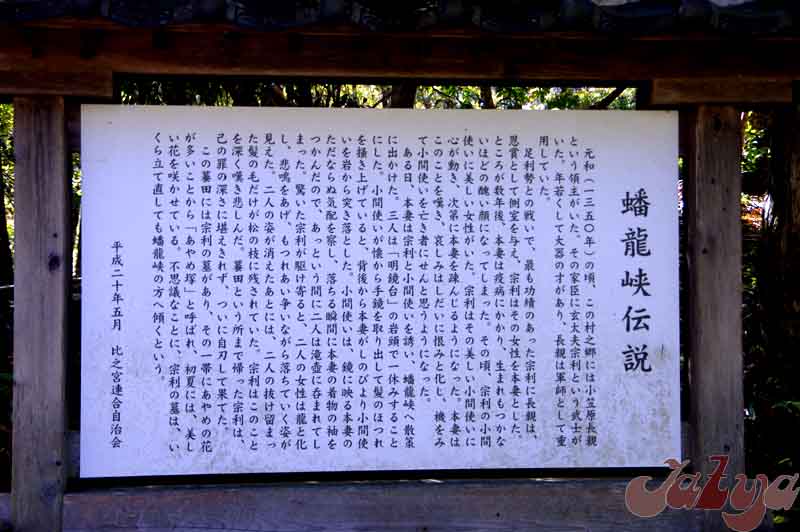 蟠龍峡伝説
元和(一三五〇年)の頃、この村之郷には小笠原長親
という領主がいた。その家臣に玄太夫宗利という武士が
いた。年若くして大器の才があり、長親は軍師として重
用していた。
足利勢との戦いで、最も功績のあった宗利に長親は、
恩賞として側室を与え、宗利はその女性を本妻とした。
ところが数年後、本妻は疫病にかかり、生まれもつかな
いほどの醜い顔になってしまった。その頃、宗利の小間
使いに美しい女性がいた。宗利はその美しい小間使いに
心が動き、次第に本妻を疎んじるようになった。本妻は
このことを嘆き、哀しみはしだいに恨みと化し、機をみ
て小間使いを亡き者にせんと思うようになった。
ある日、本妻は宗利と小間使いを誘い、蟠龍峡へ散策
に出かけた。三人は「明鏡台」の岩頭で一休みすること
にした。小間使いが懐から手鏡を取り出して髪のほつれ
を掻き上げていると、背後から本妻がしのびより小間使
いを岩から突き落とした。小間使いは、鏡に映る本妻の
ただならぬ気配を察し、落ちる瞬間に本妻の着物の袖を
つかんだので、あっという間に二人は滝壺に呑まれてし
まった。驚いた宗利が駆け寄ると、二人の女性は龍と化
し、悲鳴をあげ、もつれあい争いながら落ちていく姿が
見えた。二人の姿が消えたあとには、二人の抜け留まっ
た髪の毛だけが松の枝に残されていた。宗利はこのこと
を深く嘆き悲しんだ。蟇田という所まで帰った宗利は、
己の罪の深さに堪えきれず、ついに自刃して果てた。
この蟇田には宗利の墓があり、その一帯にあやめの花
が多いことから「あやめ塚」と呼ばれ、初夏には、美し
い花を咲かせている。不思議なことに、宗利の墓は、い
くら立て直しても蟠龍峡の方へ傾くという。
平成二十年五月 比之宮連合自治会
Jalya